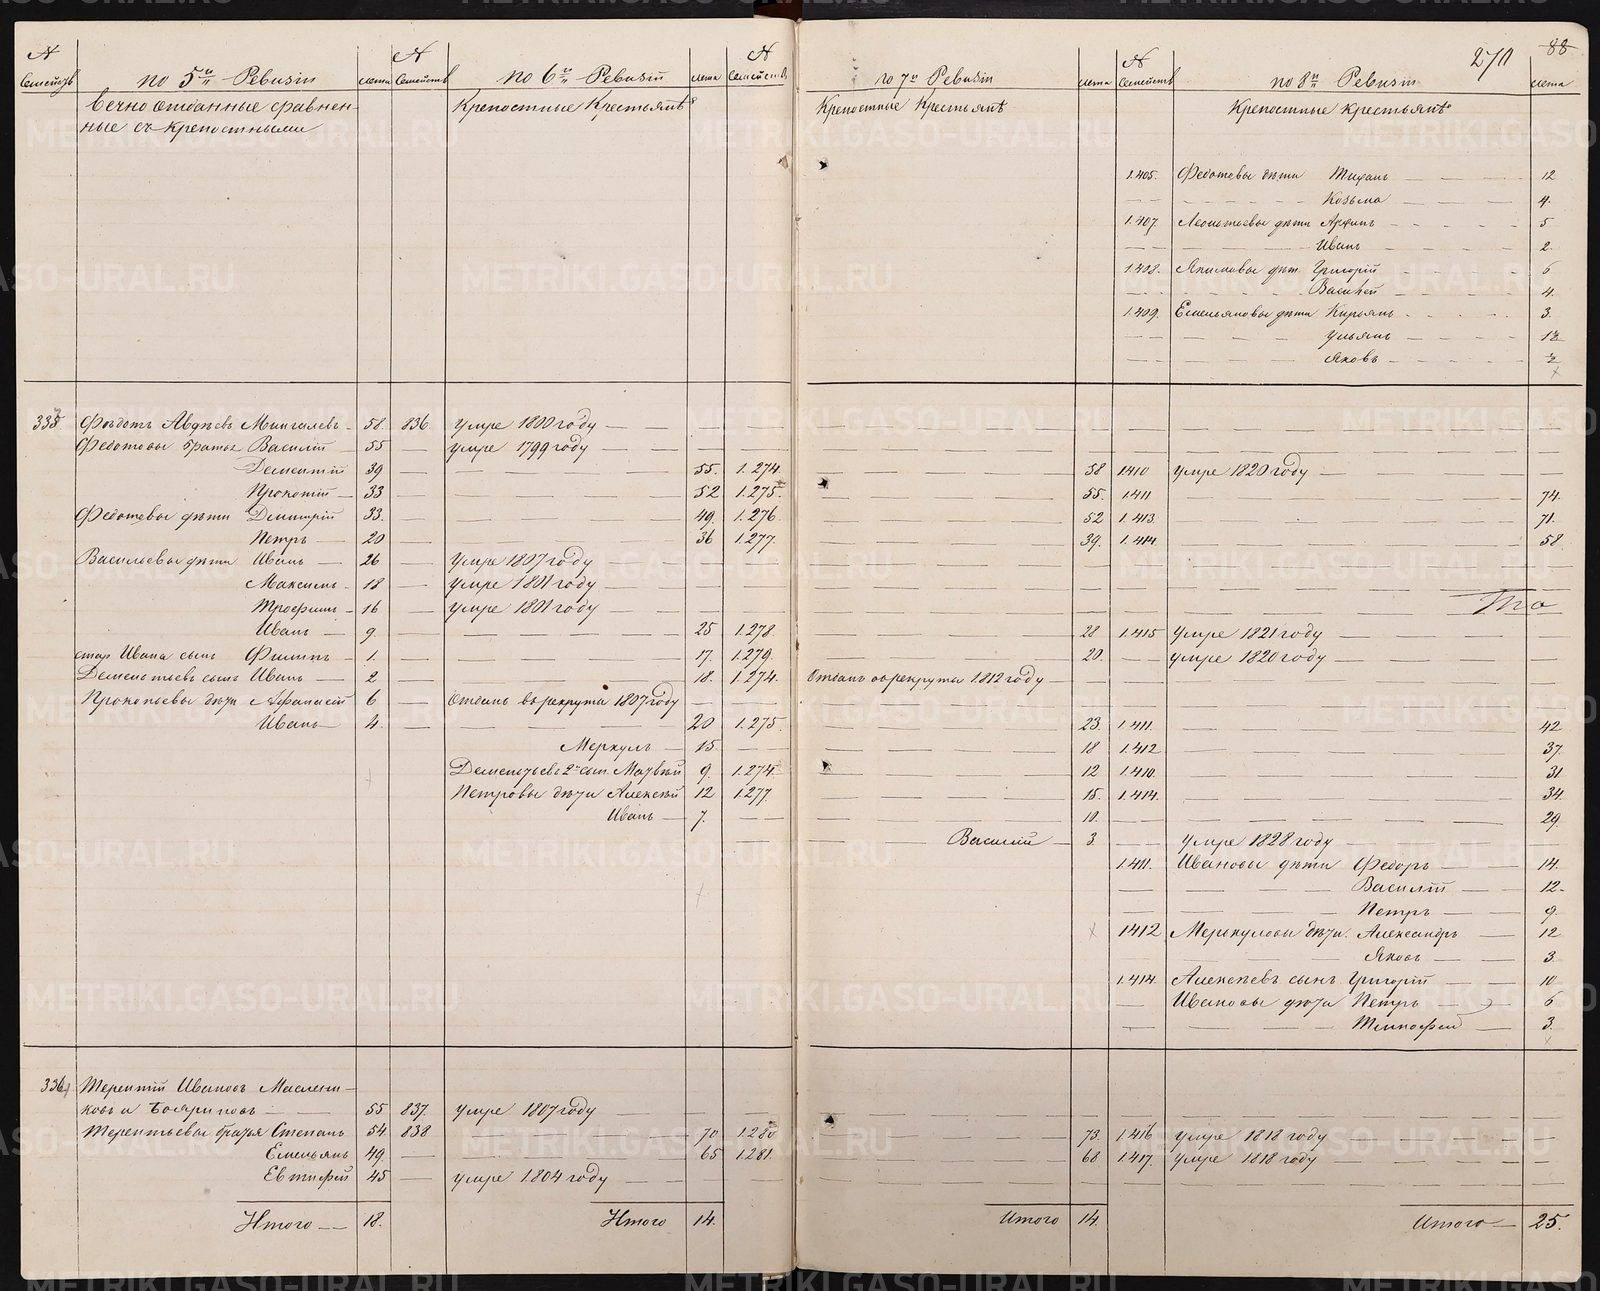 № Семействъ по 5й Ревизiи лета № Семействъ по 6й Ревизiи лета № Семействъ
по 7й Ревизiи лета № Семействъ по 8й Ревизiи лета
270 88
Вечно отданные сравнен-
ные съ крепостными
Крепостные Крестьянѣ
Крепостные Крестьянѣ
Крепостные крестьянѣ
1405. Федотовы дѣти 12
Козьма 4.
1.407. Леонтьевы дѣти Архипъ 5
Иванъ 2
1.408. Якимовы дѣт. Григорiй 6
Василей 4.
1.409. Емельяновы дѣти Кирьянъ 3.
Ульянъ
Яковъ
335 Федотъ Авдѣевъ 58. 836. умре 1800 году
Федотовы братья Василiй 55 умре 1799 году
Дементiй 39 55. 1.274. 58 1410 умре 1820 году
Прокопiй 33 52 1.275. 55. 1.411 74.
Федотовы дѣти Дмитрiй 33. 49. 1.276. 52 1.413. 71.
Петръ 20 36 1.277. 39. 1.414. 58.
Васильевы дѣти Иванъ 26 умре 1807 году
Максимъ 18 умре 1801 году
Трофимъ 16 умре 1801 году
Иванъ 9. 25 1.278. 28 1.415 умре 1821 году
Ивана сынъ Филипъ 1. 17. 1.279. 20. умре 1820 году
Дементьевъ сынъ Иванъ 2 18. 1.274. Отданъ в рекруты 1812 году
Прокопьевы дѣти Афанасiй 6 Отданъ в рекруты 1807 году
Иванъ 4. 20 1.275. 23. 1.411. 42
Меркулъ 15. 18 1.412 37.
Дементьевъ 2й сын. Матвѣй 9. 1.274. 12 1.410. 31
Петровы дѣти Алексѣй 12 1.277. 15. 1.414. 34.
Иванъ 7. 10. 29.
Василiй 3 умре 1828 году
1.411. Ивановы дѣти Федоръ 14.
Василiй 12.
Петръ 9.
1412 Меркуловы дѣти. Александръ 12
Яковъ 3
1.414. Алексѣевъ сынъ Григорiй 10
Ивановы дѣти Петръ 6
Тимофей 3.
336 Терентiй Ивановъ Маслени-
ковъ и Бояриновъ 55 837. умре 1807 году
Терентьевы братья Степанъ 54. 838 70 1.280 73. 1.416 умре 1818 году
Емельянъ 49 65 1.281. 68 1.417. умре 1818 году
Евтифей 45 умре 1.804 году
Итого 18. Итого 14. Итого 14. Итого 25.
METRIKI.GASO-URAL.RU